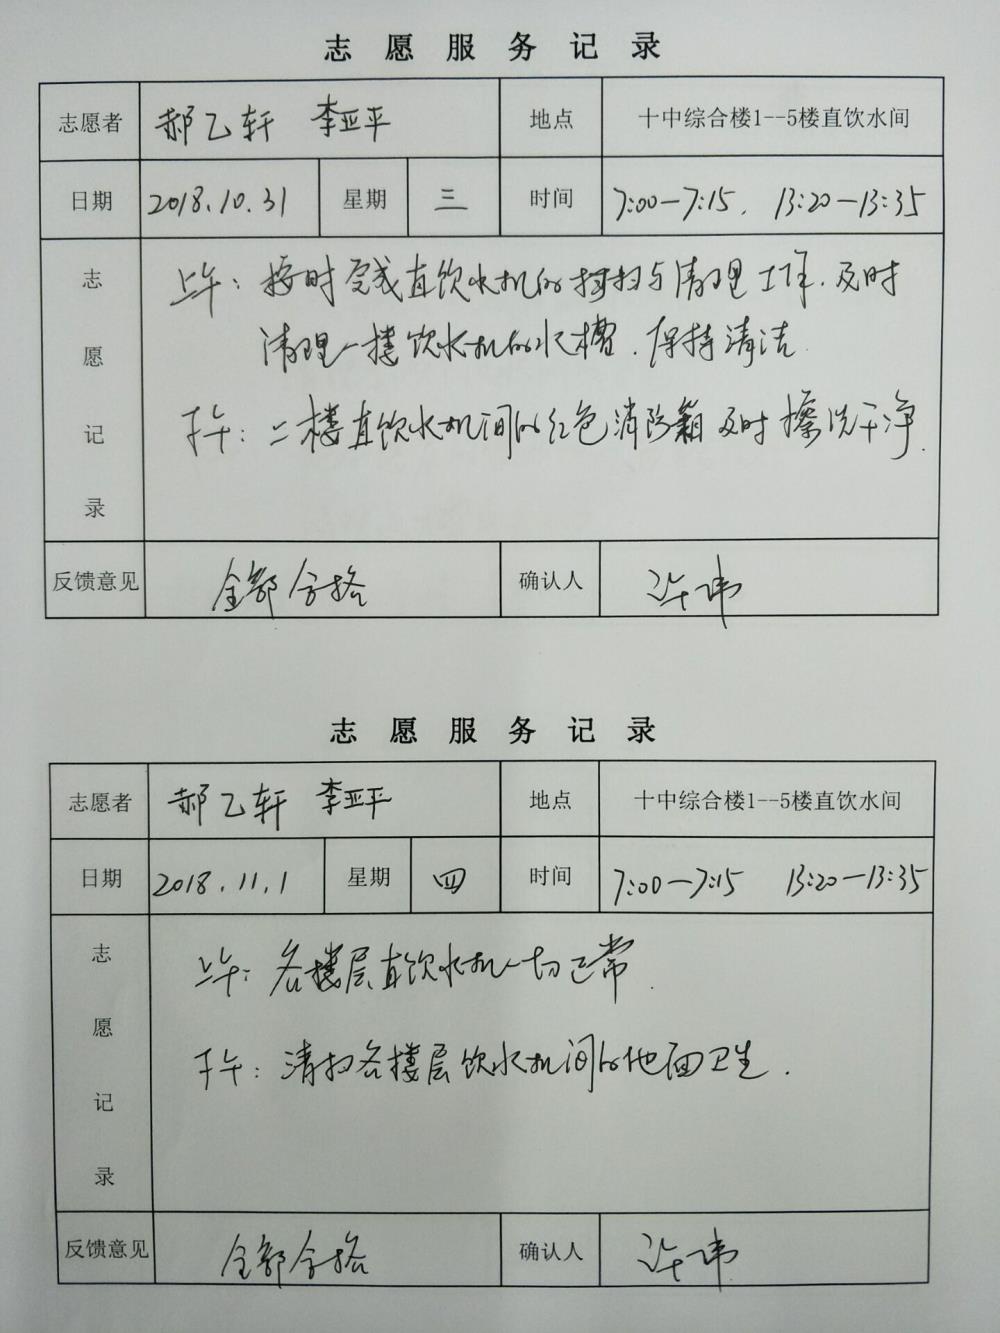 志愿服务记录
志愿者 郝乙轩 李亚平 地点 十中综合楼1--5楼直饮水间
日期 2018.10.31 星期 三 时间 7:00—7:15. 13:20—13:35
志愿记录
上午：按时完成直饮水机的擦扫与清理工作.及时
清理一楼饮水机的水槽.保持清洁
下午：二楼直饮水机间的红色消防箱及时擦洗干净.
反馈意见 全部合格 确认人 许玮
志愿服务记录
志愿者 郝乙轩 李亚平 地点 十中综合楼1--5楼直饮水间
日期 2018.11.1 星期 四 时间 7:00—7:15 13:20—13:35
志愿记录
上午：各楼层直饮水机一切正常.
下午：清扫各楼层饮水机间的地面卫生.
反馈意见 全部合格 确认人 许玮